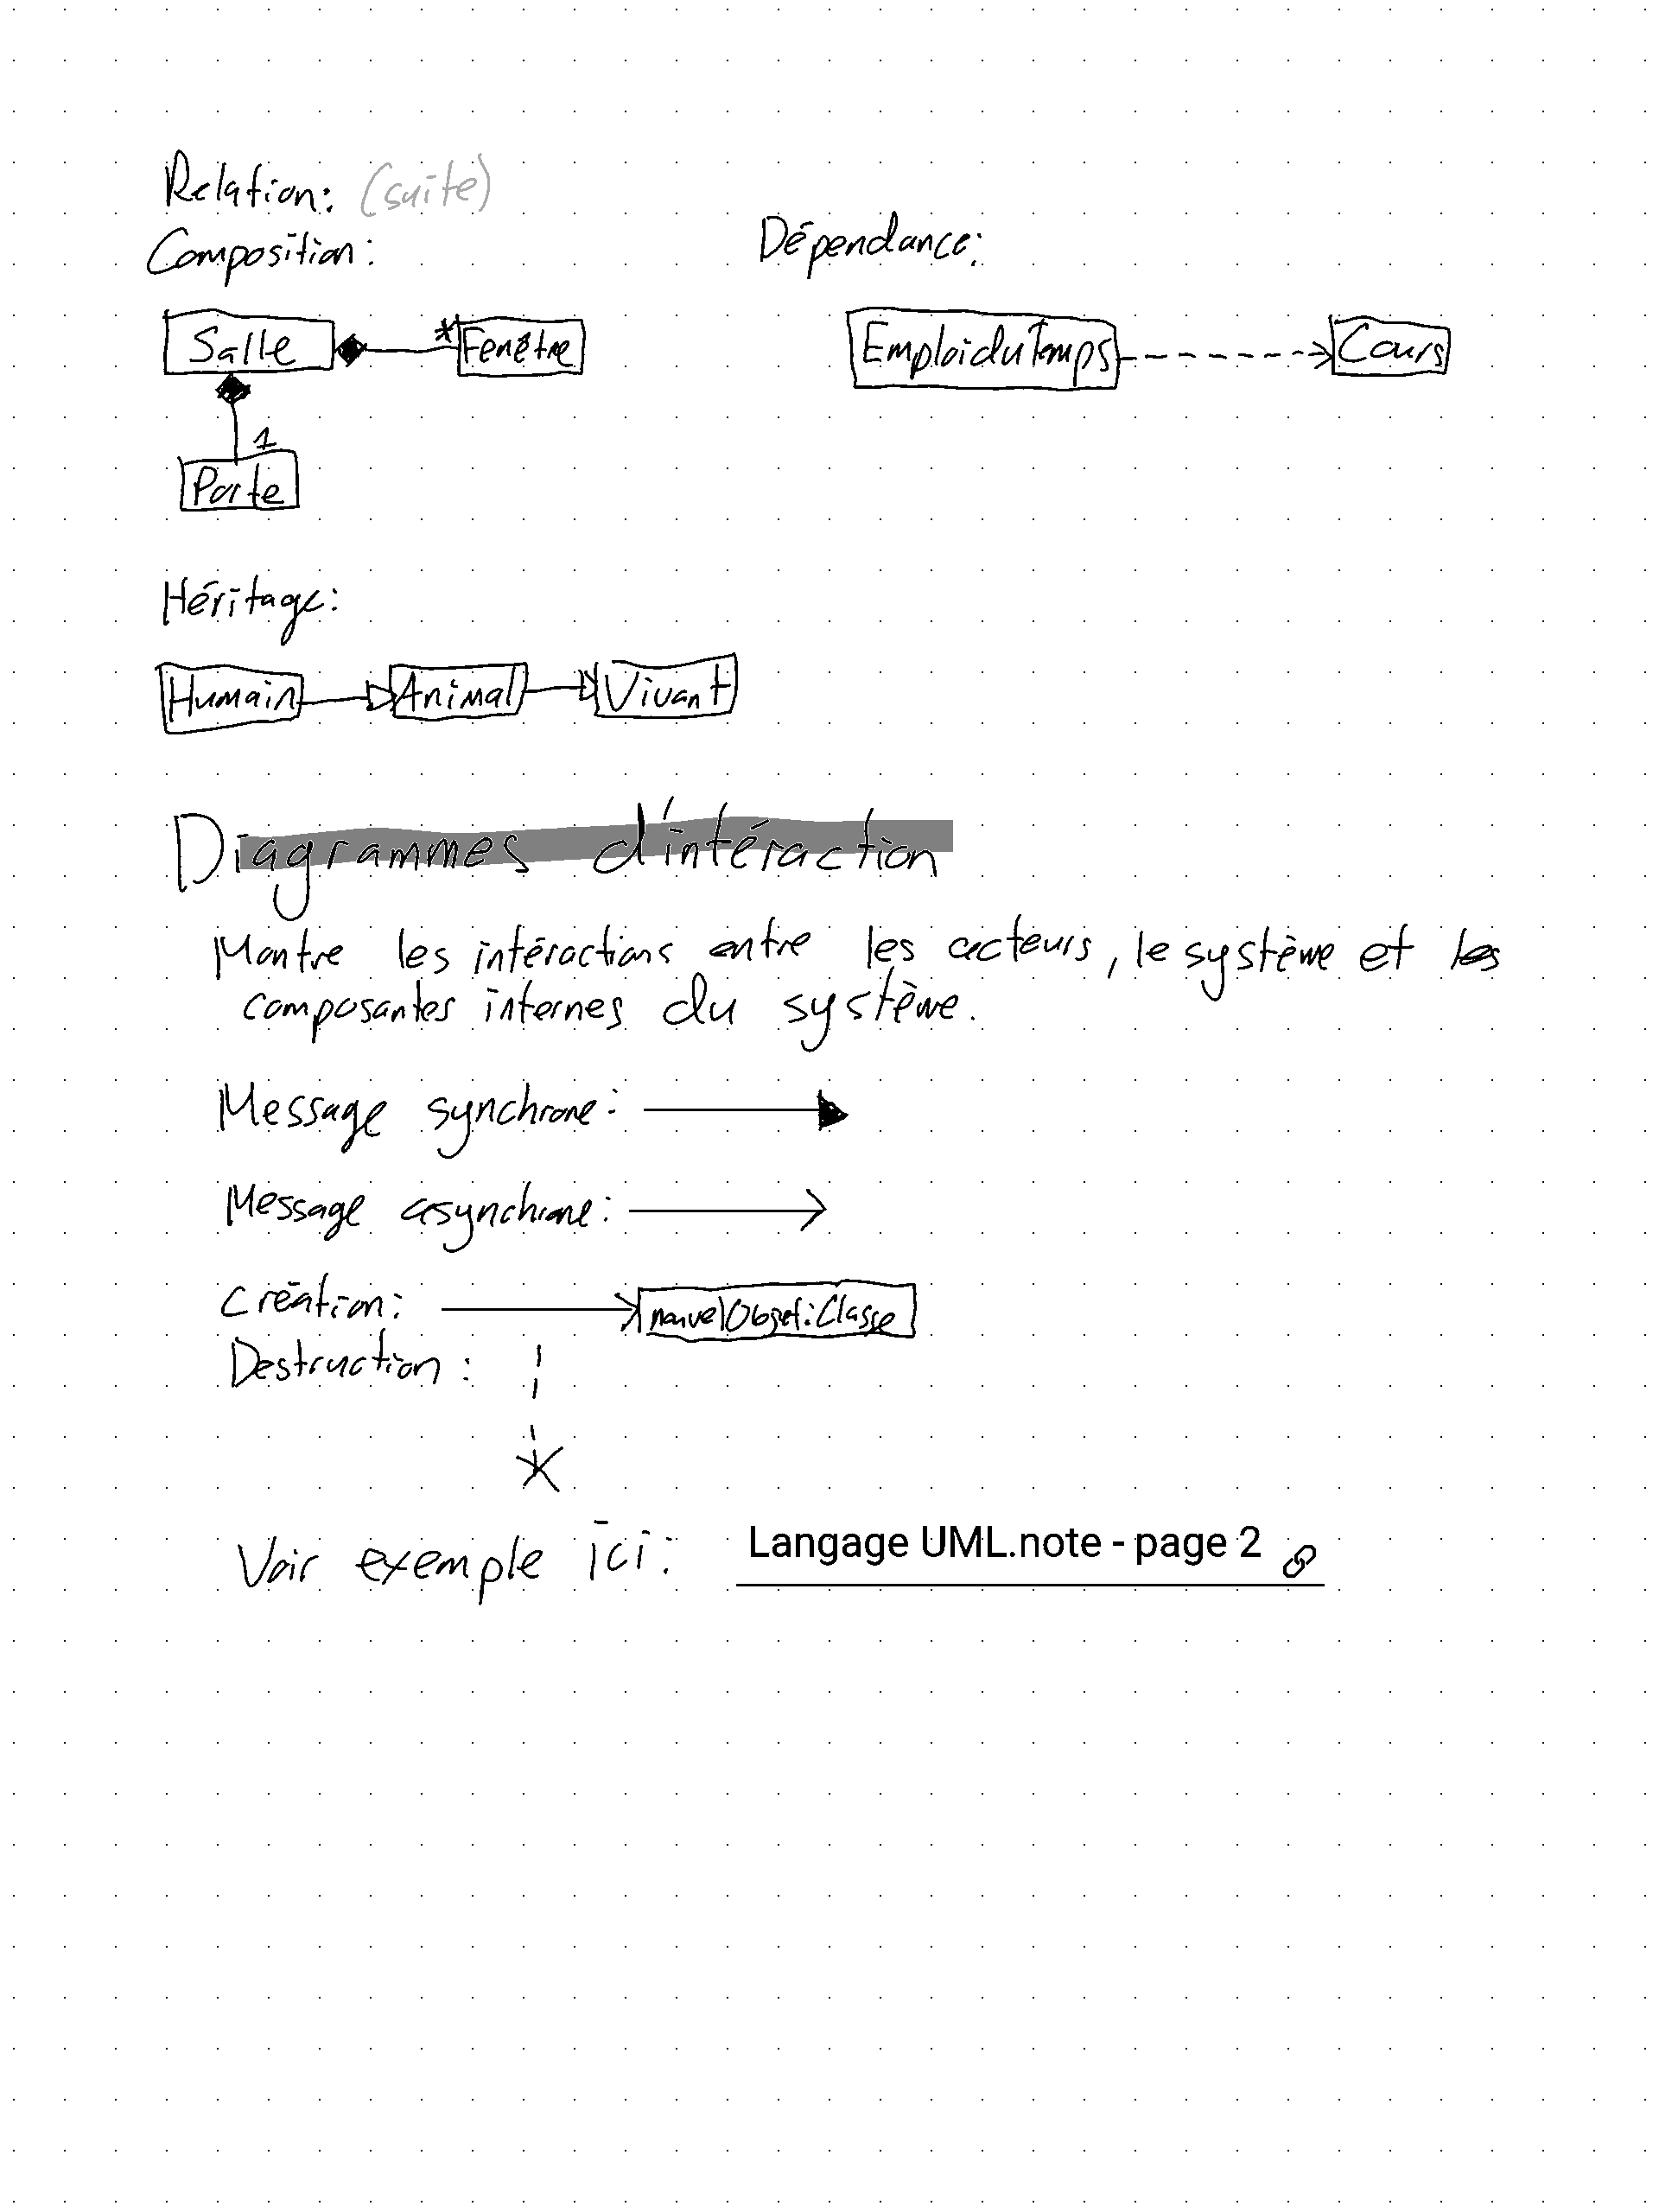 Relation: (suite)
Composition:
Dépendance:
Salle
* Fenêtre
EmploiduTemps
Cours
1
Porte
Héritage:
Humain
Animal
Vivant
Diagrammes d'intéraction
Montre les intéractions entre les acteurs, le système et les
composantes internes du système.
Message synchrone:
Message asynchrone:
Création:
nouvelObjet:Classe
Destruction:
Voir exemple ici: Langage UML.note - page 2